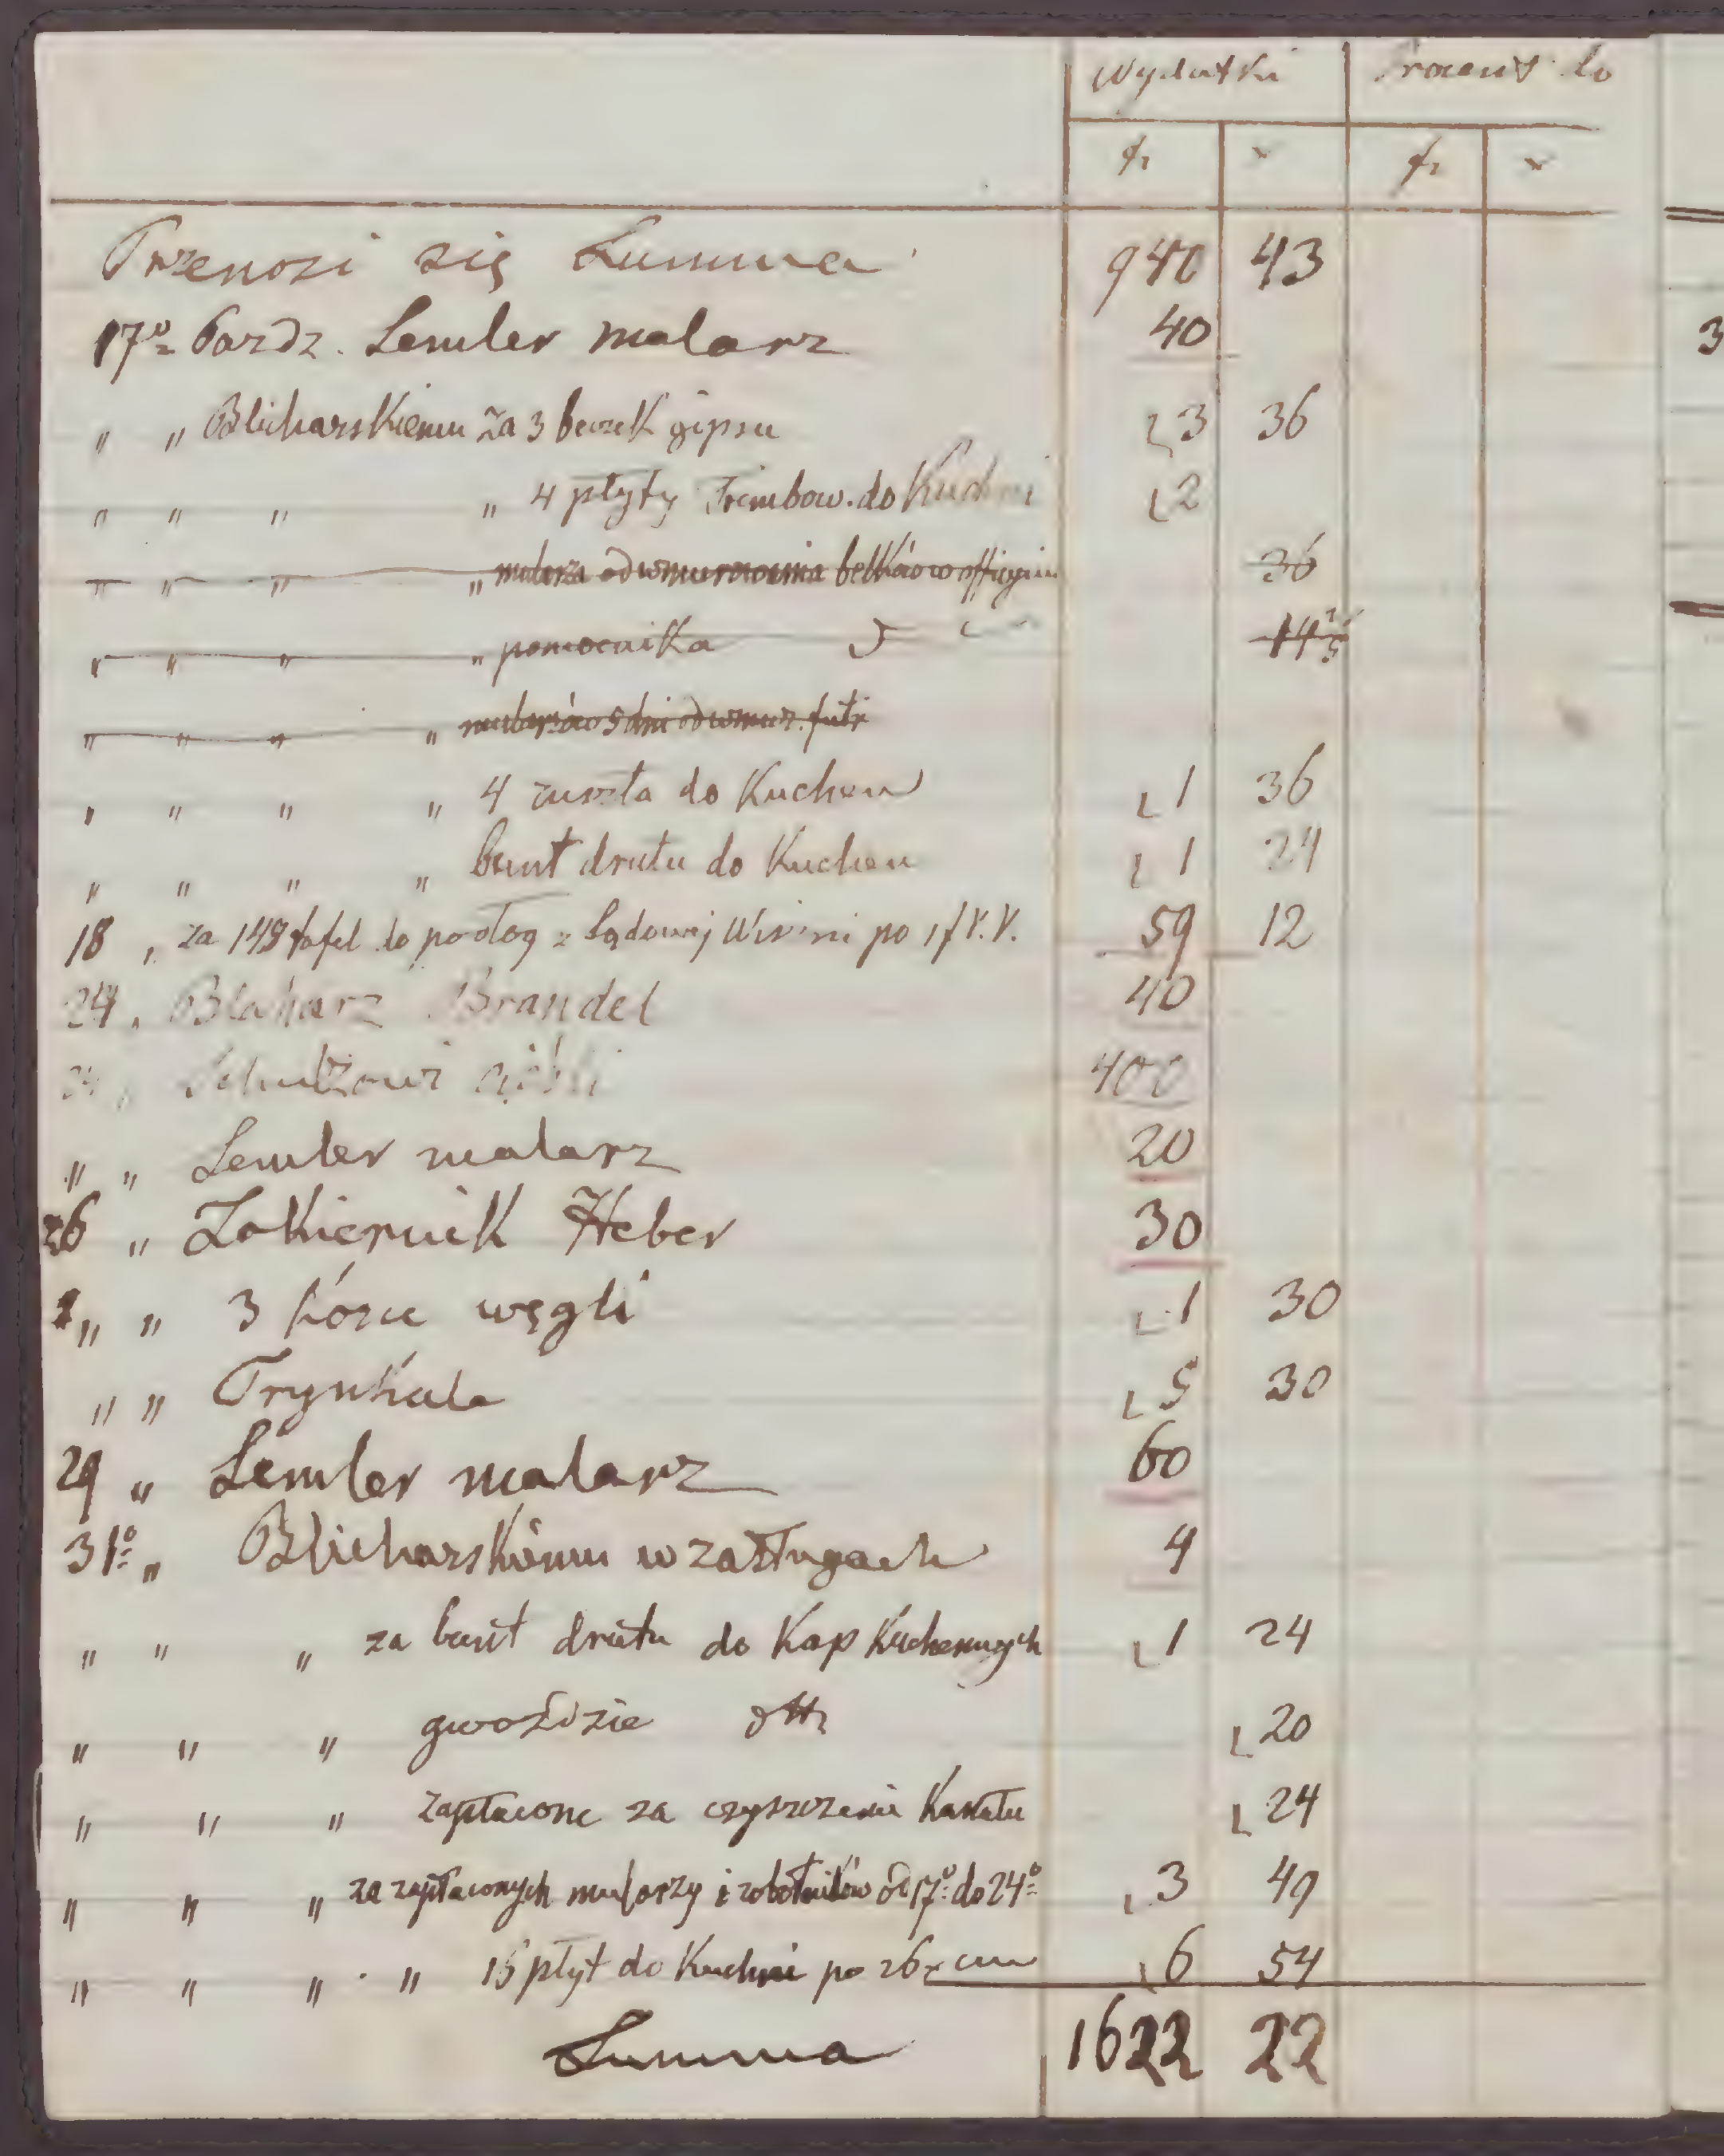 Wydatki Procent do
fr x fr x
Przenosi się Summa 940 43
17º Pazdz. Lemler malarz 40
„ „ Blicharskiemu za 3 beczek gipsu 3 36
„ „ „ „ 4 płyty Trembow. do Kuchni 2
„ „ „ „ mularza od wmurowania belków w officynie 36
„ „ „ „ pomocnika 14
„ „ „ „ mularzów 5 dni od wmur. futr
„ „ „ „ 4 ruszta do Kuchen 1 36
„ „ „ „ bunt drutu do Kuchen 1 24
18 „ za 148 tafel do podłog z Sądowej Wiszni po 1 f V.V. 59 12
24 „ Blaharz Brandel 40
„ Schulzowi cieśli 400
„ „ Lemler malarz 20
26 „ Lakiernik Heber 30
„ „ 3 kórce węgli 1 30
„ „ Trynkala 5 30
29 „ Lemler malarz 60
31º „ Blicharskiemu w zasługach 4
„ „ „ za bunt drutu do Kap Kuchennych 1 24
„ „ „ gwoździe dtto 20
„ „ „ zapłacone za czyszczenie Kanału 24
„ „ „ za zapłaconych mularzy i robotników od 17º do 24º 3 49
„ „ „ „ 15 płyt do Kuchni po 26 x cm 6 54
Summa 1622 22